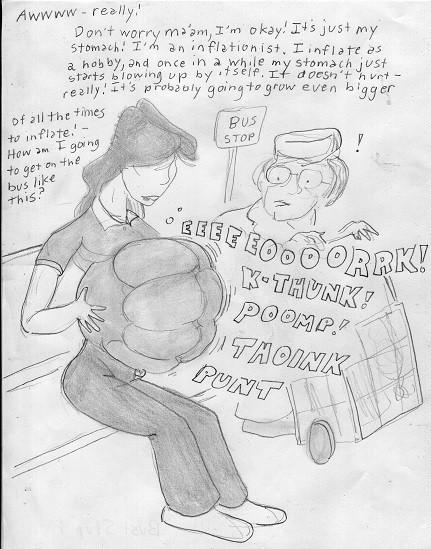 Awwww - really!
Don't worry ma'am, I'm okay! It's just my
stomach! I'm an inflationist. I inflate as
a hobby, and once in a while my stomach just
starts blowing up by itself. It doesn't hurt -
really! It's probably going to grow even bigger
Of all the times
to inflate! -
How am I going
to get on the
bus like
this?
BUS
STOP
!
EEEEEEOOOOORRK!
K-THUNK!
POOMP!
THOINK
PUNT